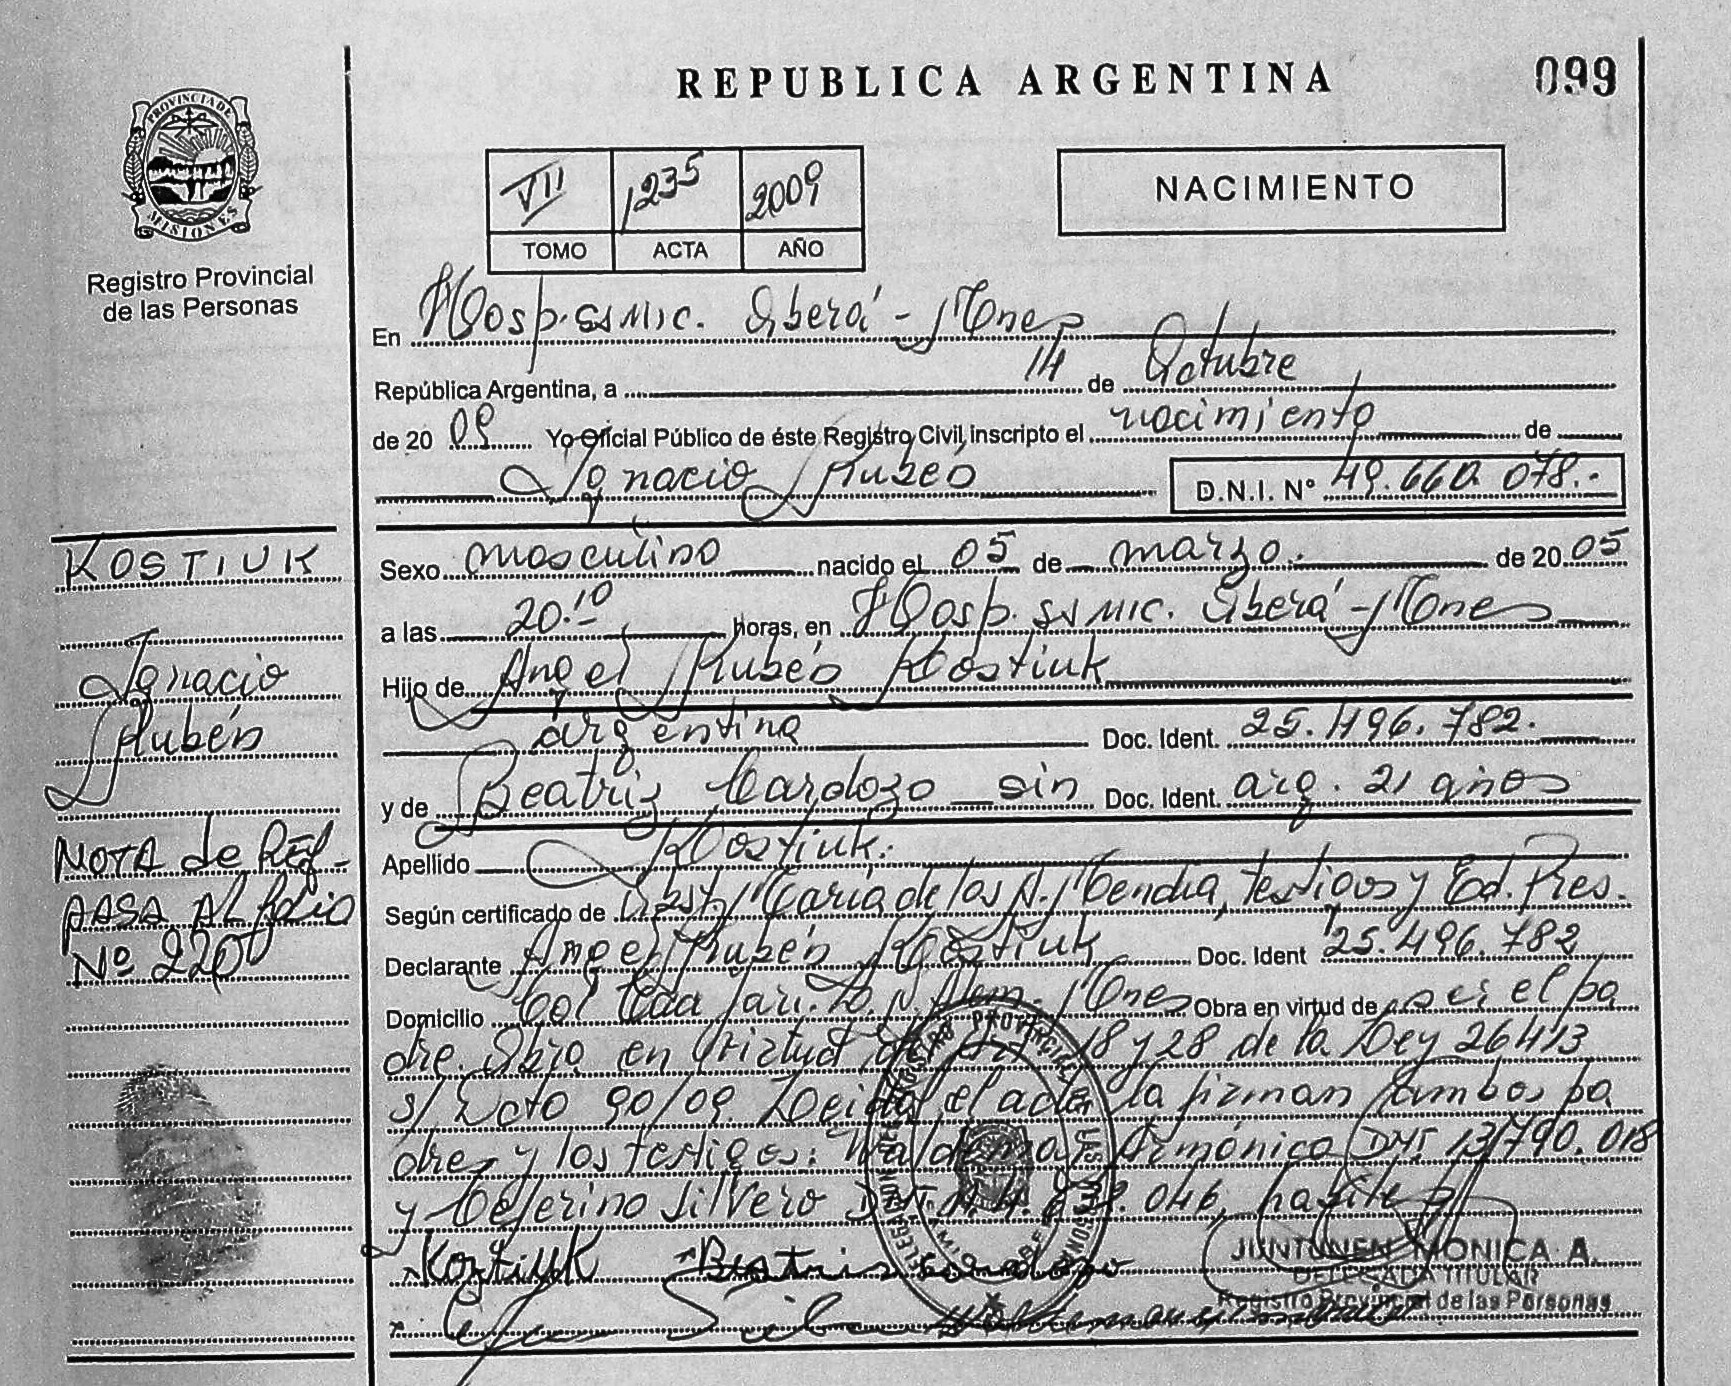 REPUBLICA ARGENTINA
099
PROVINCIA DE
MISIONES
Registro Provincial
de las Personas
VII 1235 2009
TOMO ACTA AÑO
NACIMIENTO
En Hosp. SS MIC. Iberá - Mnes
República Argentina, a 14 de Octubre
de 20 09 Yo Oficial Público de éste Registro Civil, inscripto el nacimiento de
Ignacio Rubén D.N.I. Nº 49.660.078.-
Sexo masculino nacido el 05 de marzo. de 20 05
a las 20:10 horas, en Hosp. SS MIC. Iberá - Mnes
Hijo de Angel Rubén Kostiuk
argentina Doc. Ident. 25.496.782.
y de Beatriz Cardozo sin Doc. Ident. arg. 21 años
Apellido Kostiuk.
Según certificado de Obst. María de los A. Mendia, testigos y Ed. Pres.
Declarante Angel Rubén Kostiuk Doc. Ident 25.496.782
Domicilio Col Cda L. N. Alem - Mnes Obra en virtud de ser el pa
dre. Obra en virtud de Art 18 y 28 de la Ley 26413
s/ Dcto 90/09. Leída el acta la firman ambos pa
dres y los testigos: Armónica DNI. 13.790.018
y Ceferino Silvero 046, hábiles
Kostiuk Beatris Cardozo
JUNTUNEN MONICA A.
DELEGADA TITULAR
Registro Provincial de las Personas
KOSTIUK
Ignacio
Rubén
NOTA de Ref -
PASA AL folio
Nº 220